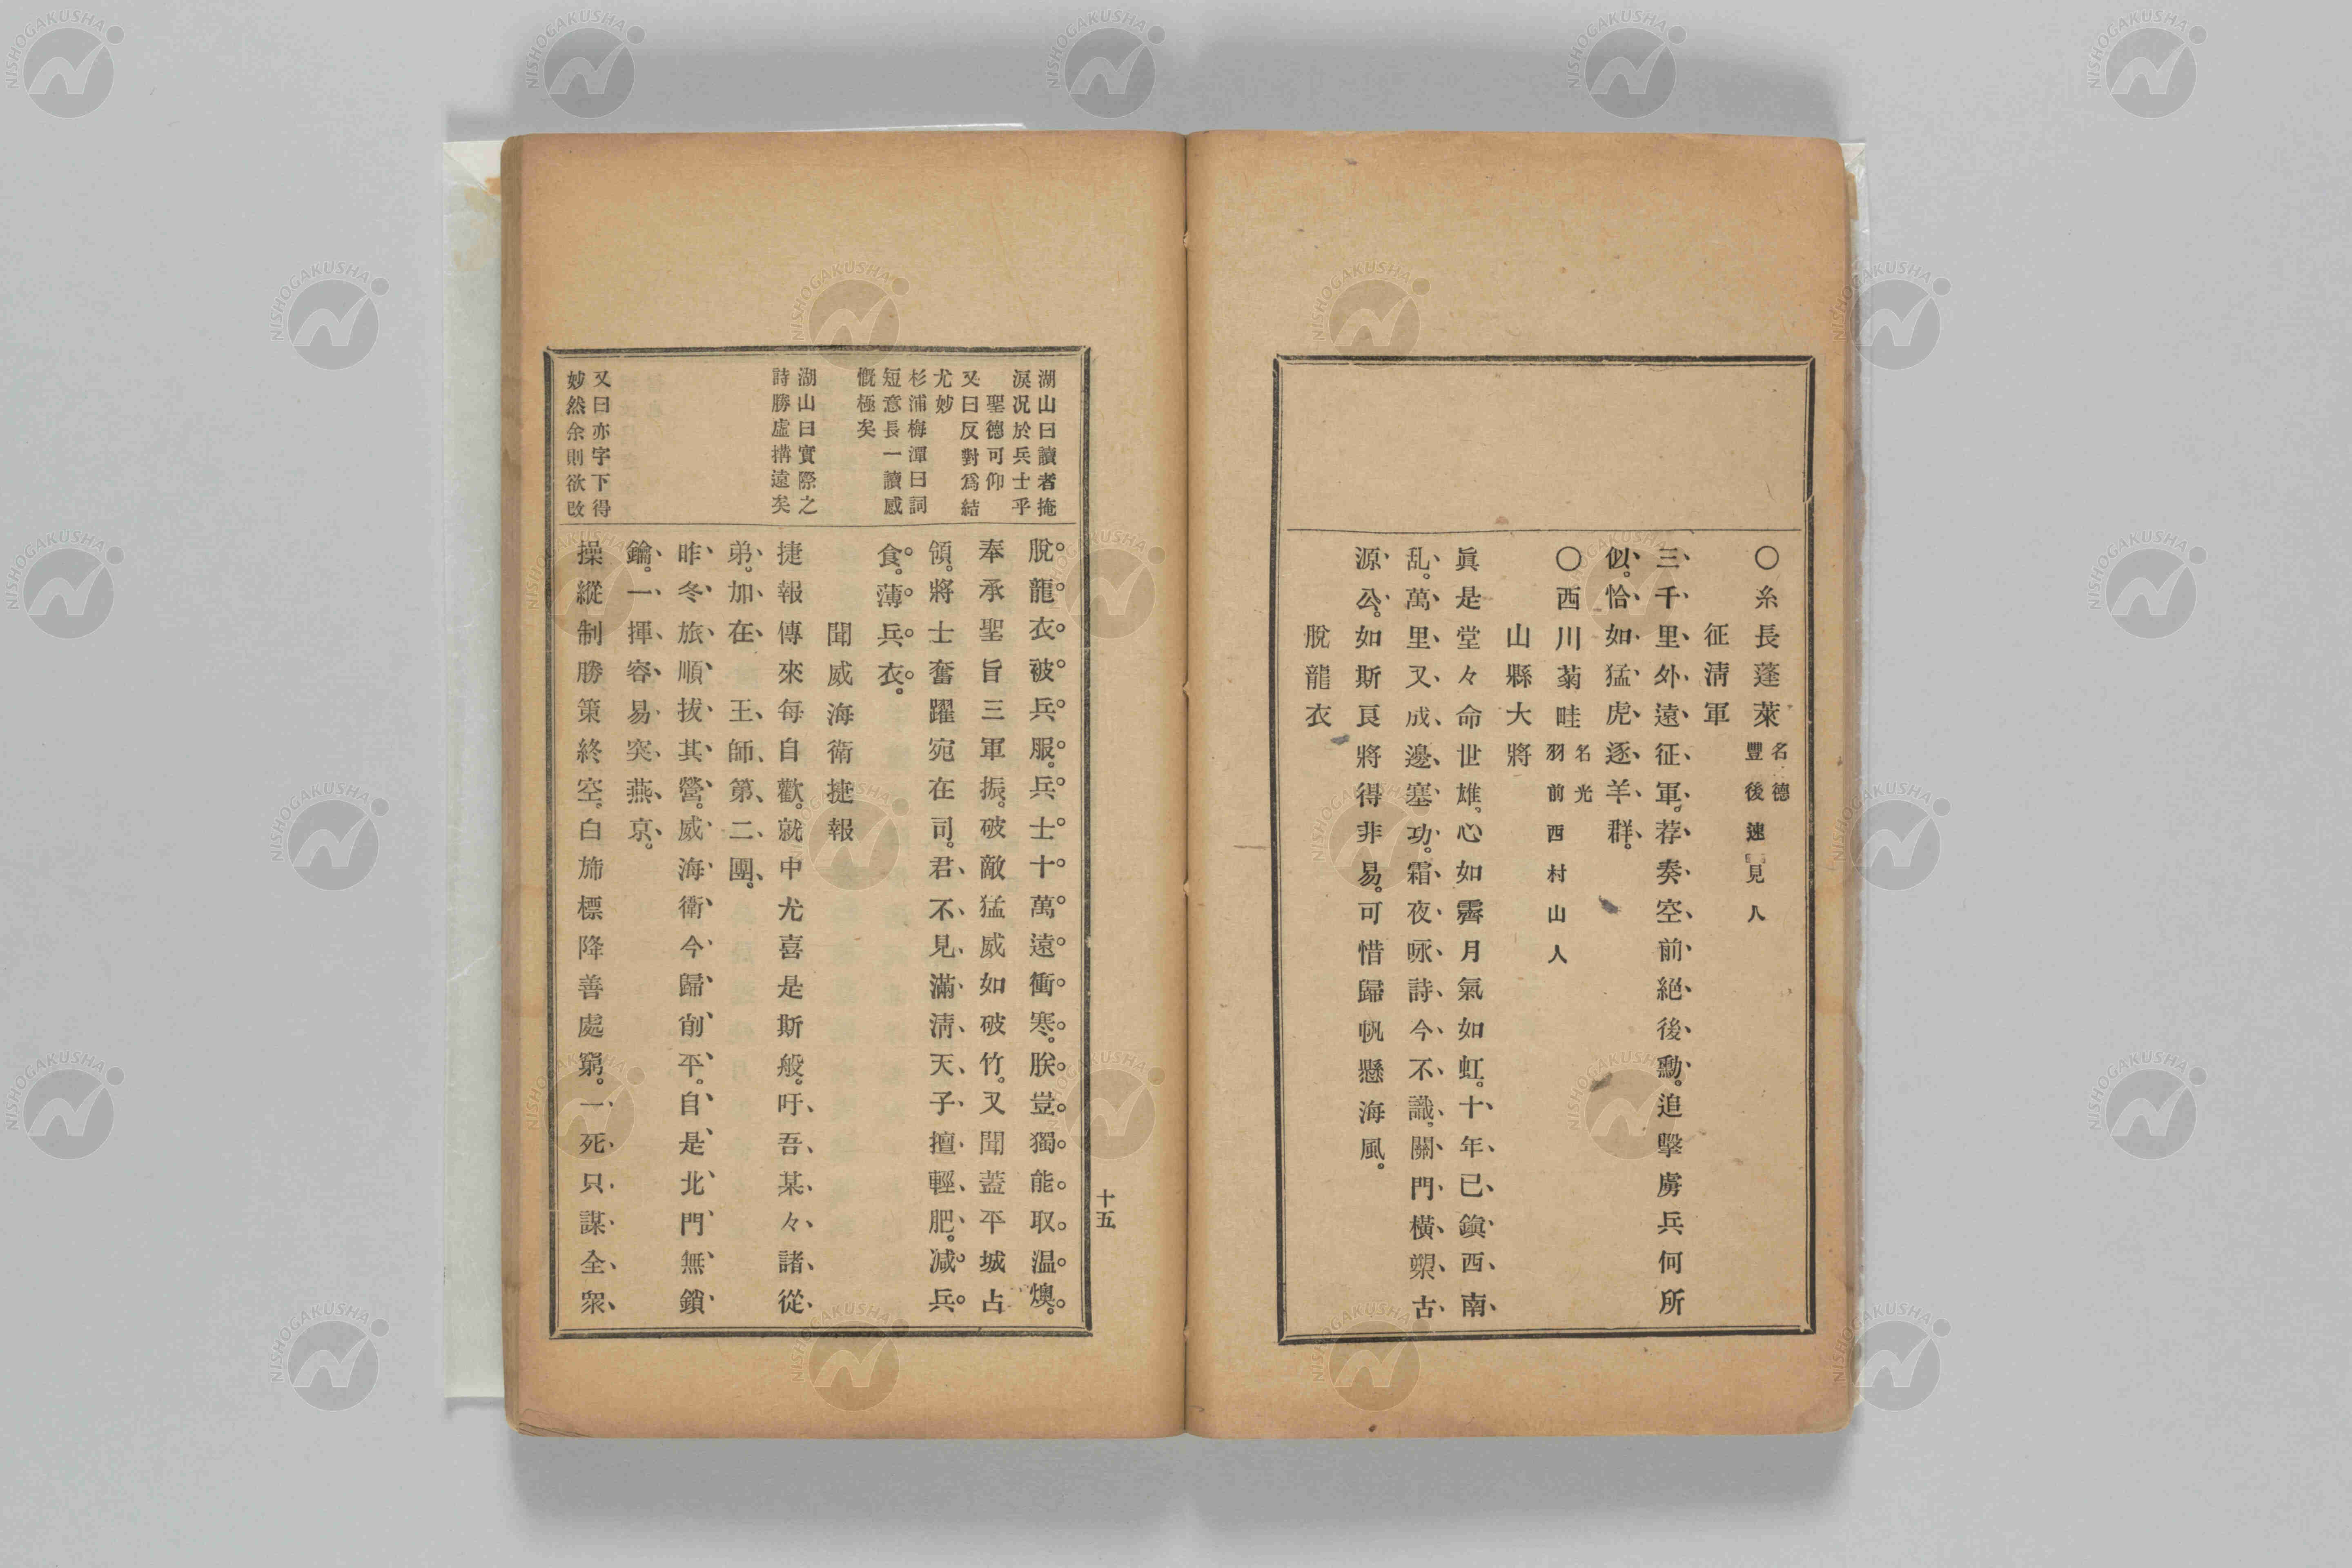 〇糸長蓬萊 名德 豐後速見人
征淸軍
三千里外遠征軍。荐奏空前絕後勳。追擊虜兵何所
似。恰如猛虎逐羊群。
〇西川菊畦 名光 羽前西村山人
山縣大將
眞是堂々命世雄。心如霽月氣如虹。十年已鎭西南
乱。萬里又成邊塞功。霜夜咏詩今不識。關門橫槊古
源公。如斯良將得非易。可惜歸帆懸海風。
脫龍衣
湖山曰讀者掩
淚况於兵士乎
聖德可仰
又曰反對爲結
尤妙
杉浦梅潭曰詞
短意長一讀感
慨極矣
湖山曰實際之
詩勝虛搆遠矣
又曰亦字下得
妙然余則欲改
脫龍衣被兵服。兵士十萬遠衝寒。朕豈獨能取温燠。
奉承聖旨三軍振。破敵猛威如破竹。又聞蓋平城占
領。將士奮躍宛在司。君不見滿淸天子擅輕肥。减兵
食。薄兵衣。
聞威海衛捷報
捷報傳來每自歡。就中尤喜是斯般。吁吾某々諸從
弟。加在王師第二團。
昨冬旅順拔其營。威海衛今歸削平。自是北門無鎖
鑰。一揮容易突燕京。
操縱制勝策終空。白旆標降善處窮。一死只謀全衆
十五
NISHOGAKUSHA